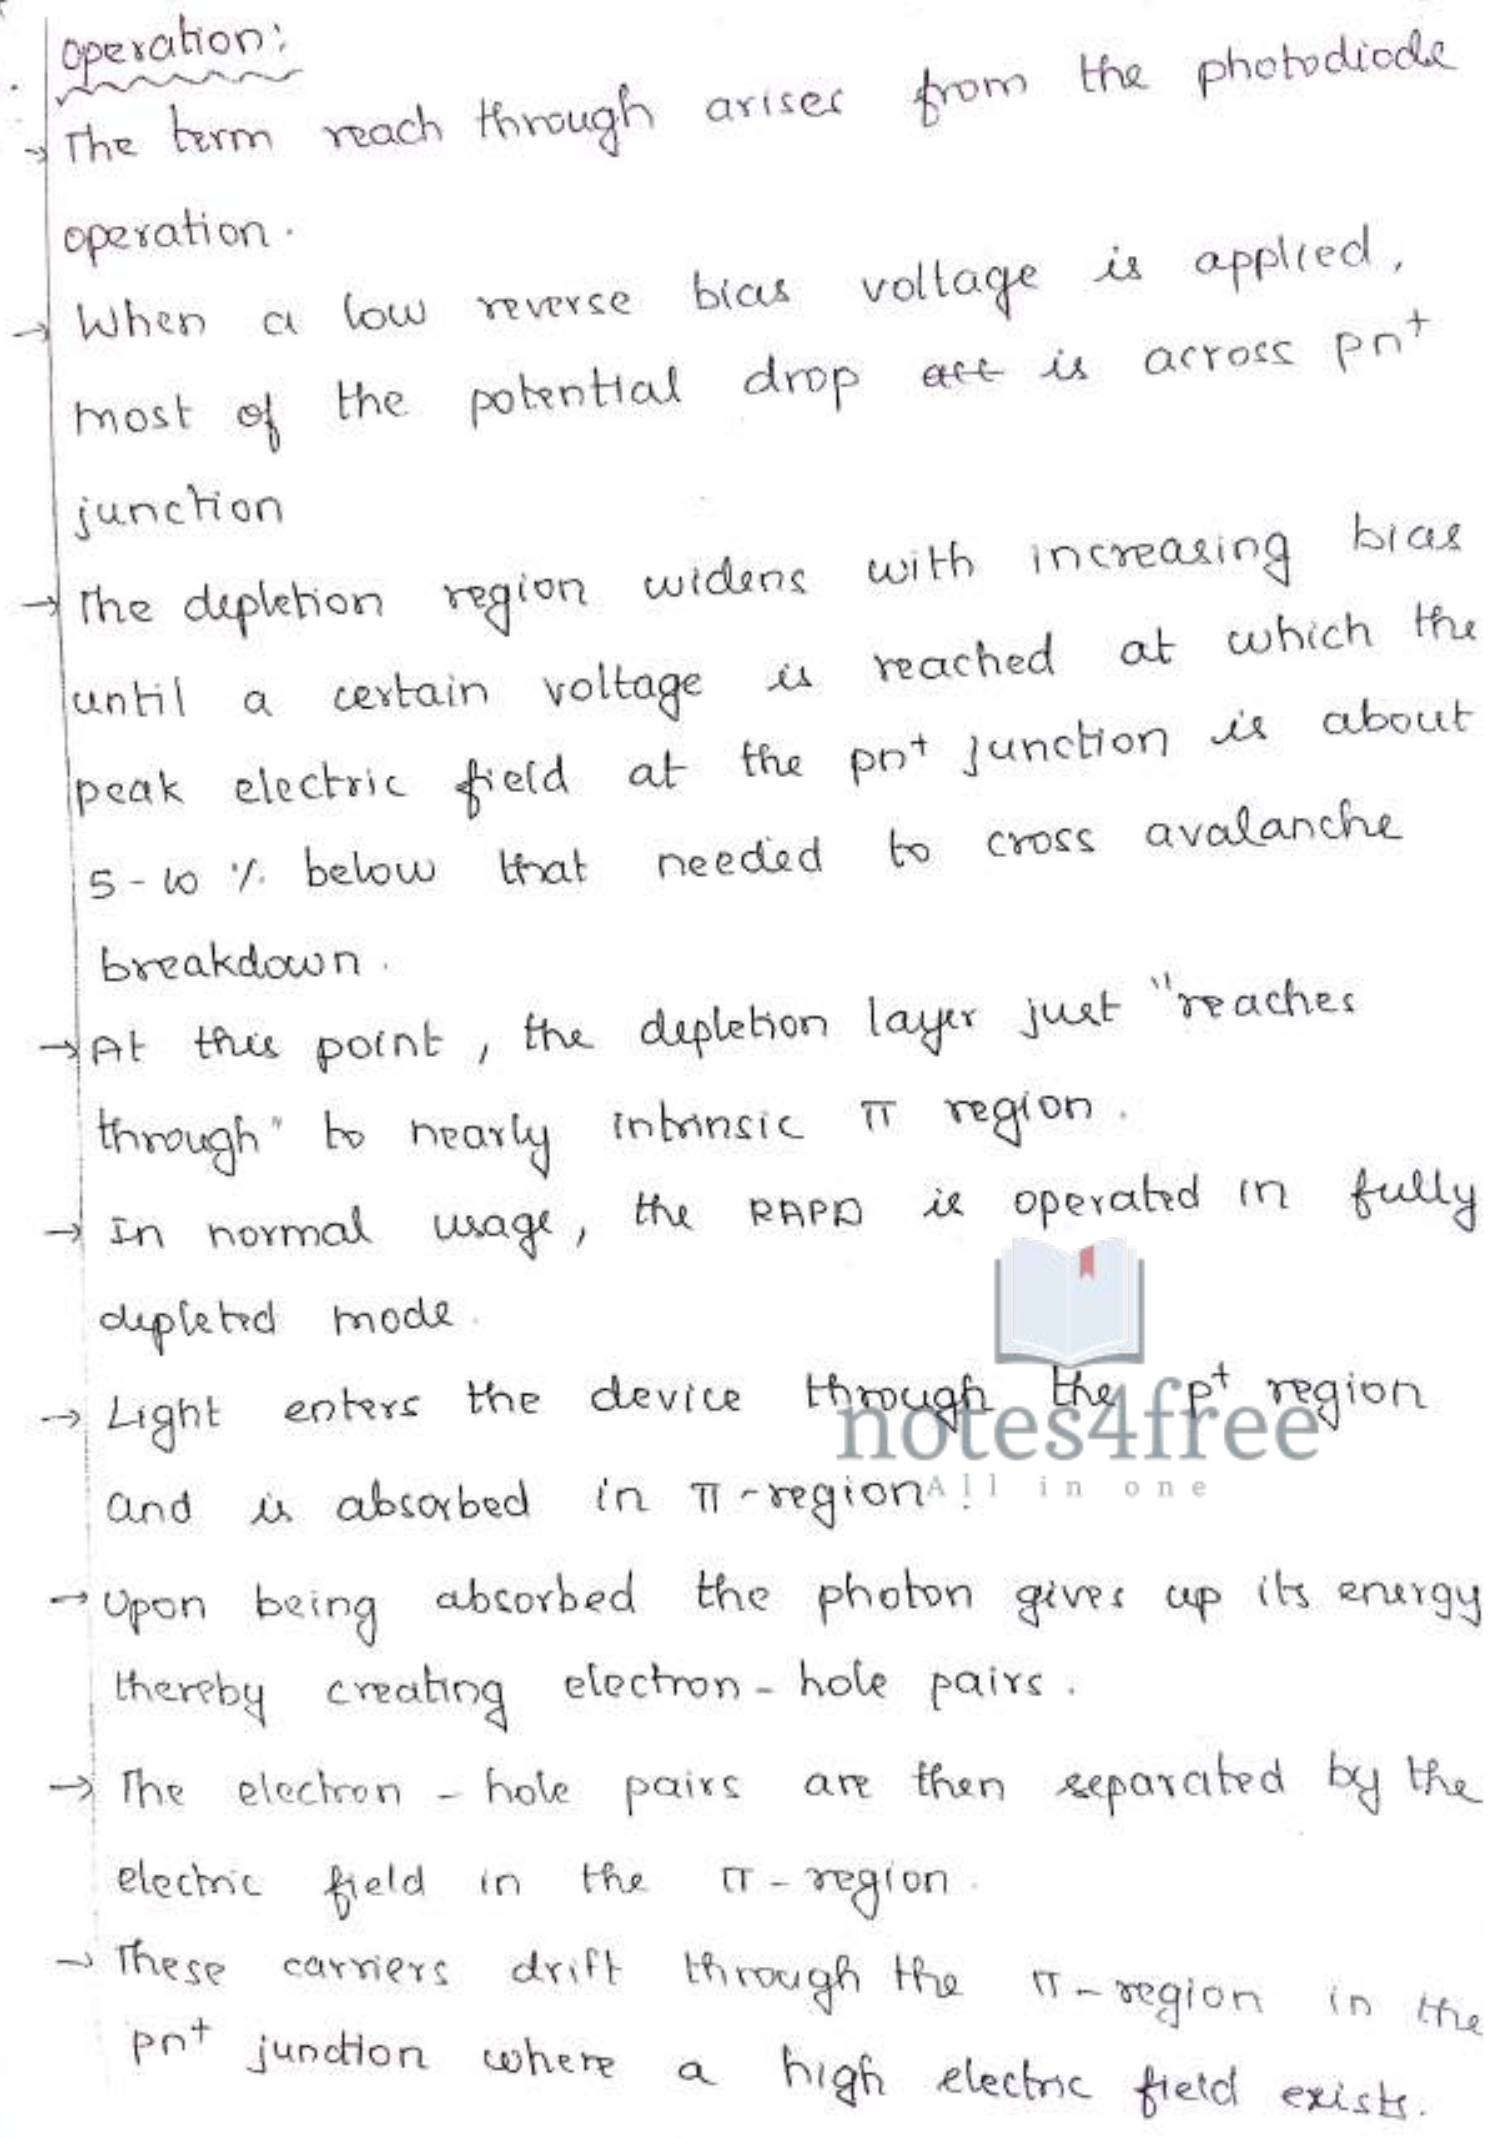 operation:
→ The term reach through arises from the photodiode
operation.
→ When a low reverse bias voltage is applied,
most of the potential drop is across pn⁺
junction
→ The depletion region widens with increasing bias
until a certain voltage is reached at which the
peak electric field at the pn⁺ junction is about
5-10 % below that needed to cross avalanche
breakdown.
→ At this point, the depletion layer just "reaches
through" to nearly intrinsic π region.
→ In normal usage, the RAPD is operated in fully
depleted mode.
→ Light enters the device through the p⁺ region
notes4free
and is absorbed in π-region.
All in one
→ Upon being absorbed the photon gives up its energy
thereby creating electron-hole pairs.
→ The electron-hole pairs are then separated by the
electric field in the π-region.
→ These carriers drift through the π-region in the
pn⁺ junction where a high electric field exists.